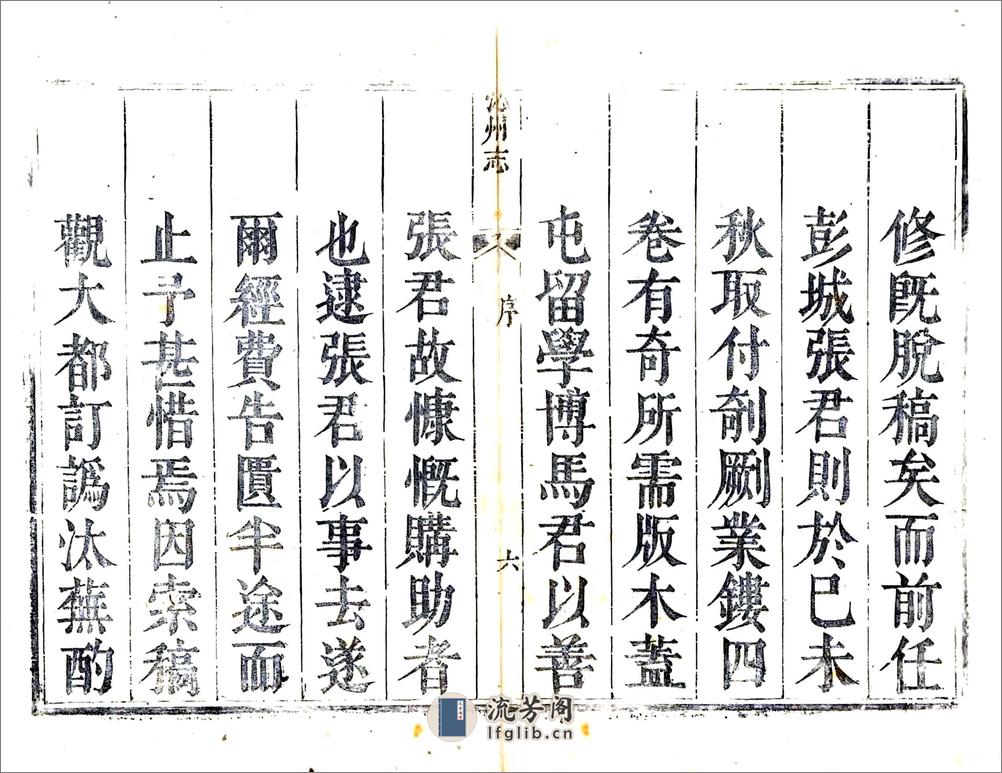 修旣脫稿矣而前任
彭城張君則於已未
秋取付剞劂業鏤四
卷有奇所需版木蓋
屯留學博馬君以善
沁州志
序
六
張君故慷慨購助者
也逮張君以事去遂
爾經費告匱半途而
止予甚惜焉因索稿
觀大都訂譌汰蕪酌
流芳阁
lfglib.cn